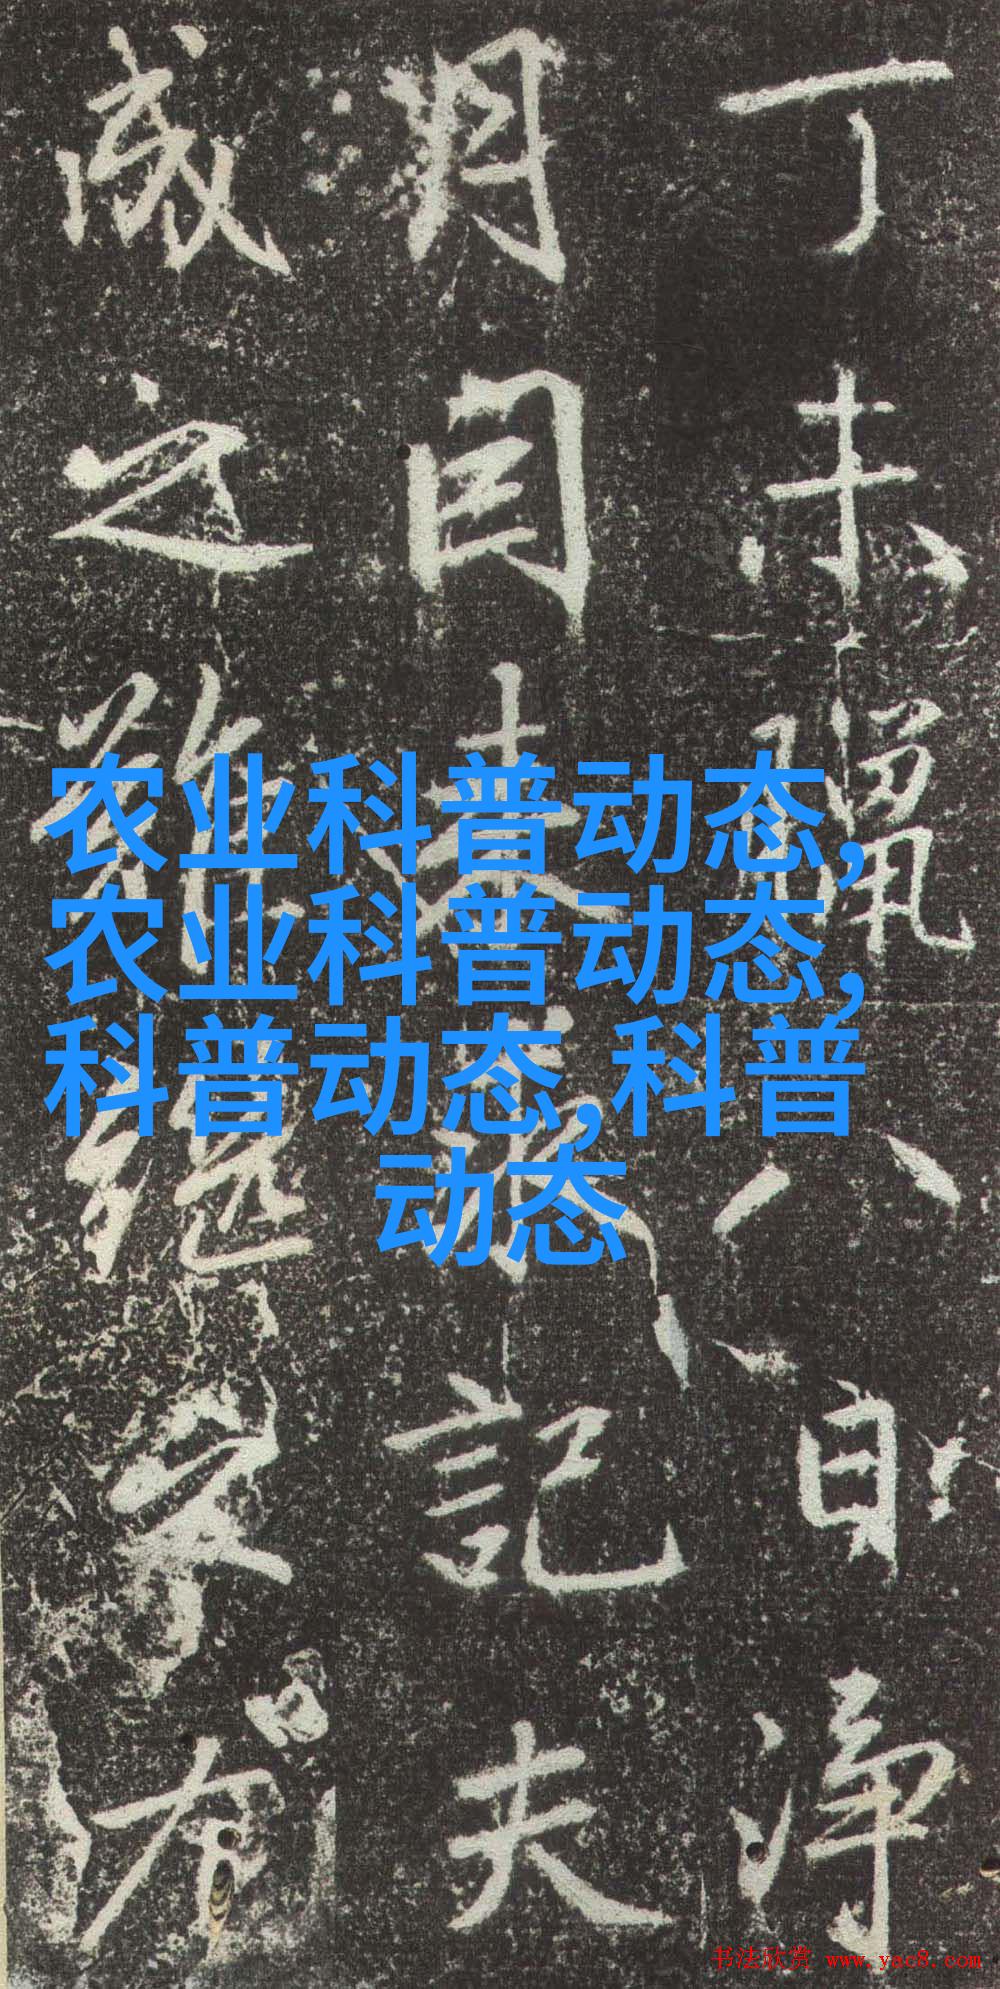 农业科普动态,
农业科普动态,
科普动态,科普
动态
丁未臘八日淨
月 記夫
成之難繼
书法欣赏 www.yac8.com